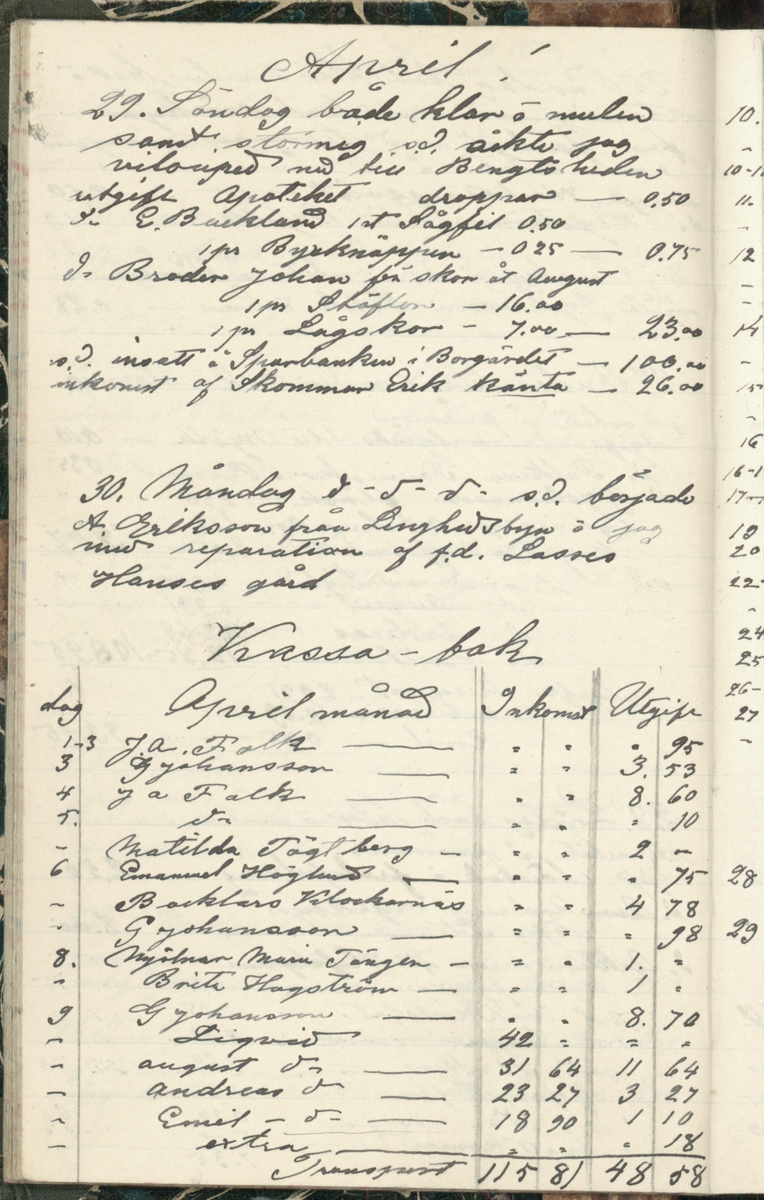 April!
29. Söndag både klar o mulen
samt stormig s.d. åkte jag
velociped ned till Bengtsheden
utgift Apoteket droppar — 0.50
d- E. Backlund 1 st Sågfil 0.50
1 pr Byxknäppen — 0 25 — 0.75
d- Broder Johan för skor åt August
1 pr Stöflor — 16.00
1 pr Lågskor - 7.00 — 23.00
s.d. insatt å Sparbanken i Borgärdet — 100.00
inkomst af Skommar Erik Känta — 26.00
30. Måndag d - d - d - s.d. började
A. Eriksson från Linghedsbyn o jag
med reparation af f.d. Lasses
Hanses gård
Kassa-bok
dag April månad Inkomst Utgift
1-3 J. a. Falk — " " " 95
3 G Johansson — " " 3. 53
4 J a Falk — " " 8. 60
5. d- — " " " 10
- Matilda Tägtberg — " " 2 -
6 Emanuel Höglund — " " " 75
- Backlars Klockarnäs " " 4 78
- G Johansson — " " " 98
8. Mjölnar Maria Tängen — " " 1. "
" Brita Hagström — " " 1 "
9 G Johansson — " " 8. 70
- Liqvid 42 " " "
- august d- — 31 64 11 64
- andreas d- — 23 27 3 27
- Emil - d- — 18 90 1 10
- extra — " " " 18
Transport 115 81 48 58
10.
-
10-11
11.
12
-
-
14
-
15
16
16-1
17-
19
20
22-
-
24
25
26-
27
-
28
29